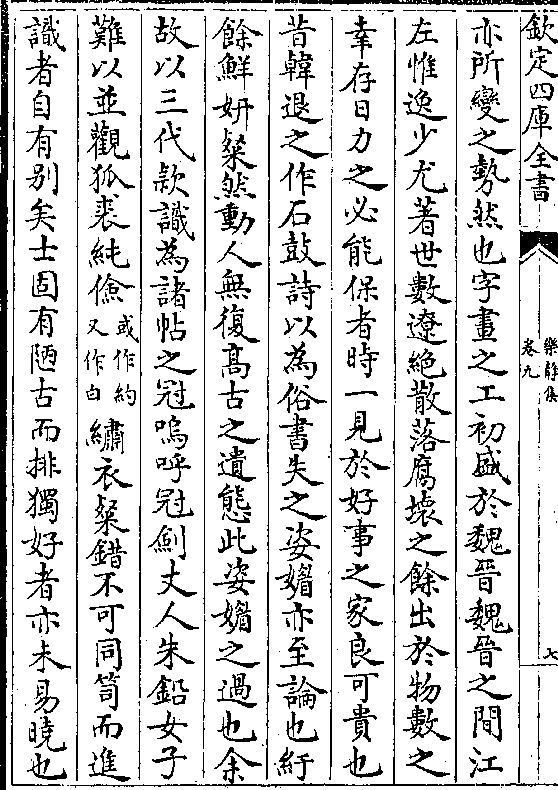 欽定四庫全書
樂靜集
卷九
七
亦所變之勢然也字畫之工初盛於魏晉魏晉之間江
左惟逸少尤著世數遼絶散落腐壞之餘出於物數之
幸存日力之必能保者時一見於好事之家良可貴也
昔韓退之作石鼓詩以為俗書失之姿媚亦至論也紆
餘鮮妍粲然動人無復高古之遺態此姿媚之過也余
故以三代款識為諸帖之冠嗚呼冠劍丈人朱鉛女子
難以並觀狐裘純儉或作約又作白繡衣粲錯不可同笥而進
識者自有别矣士固有陋古而排獨好者亦未易曉也